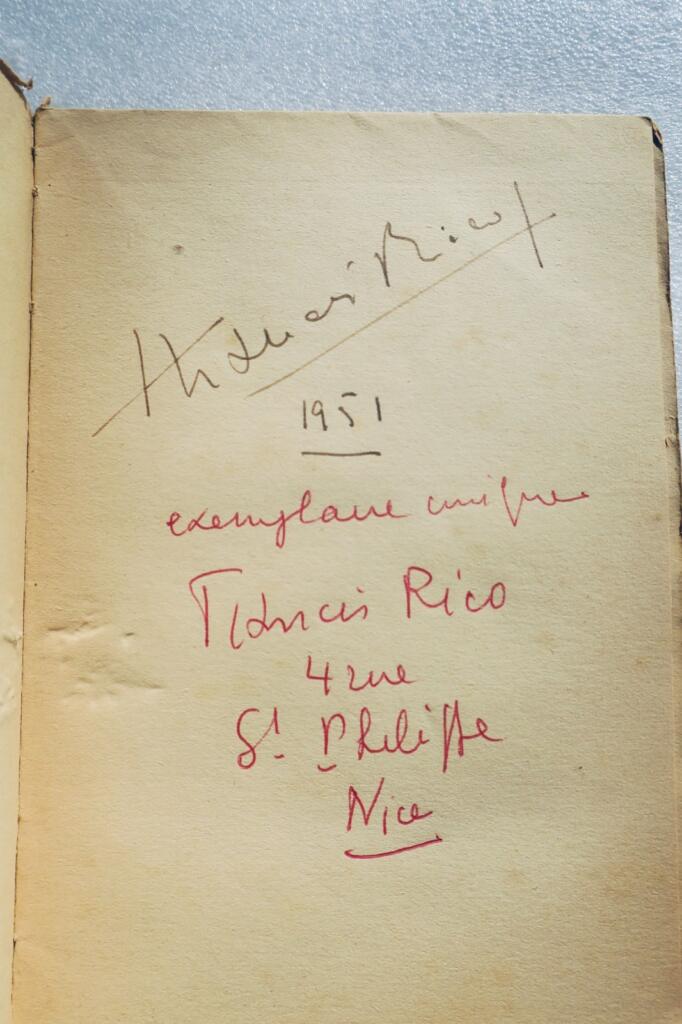 Francis Rico
1951
exemplaire unique
Francis Rico
4 rue
St. Philippe
Nice